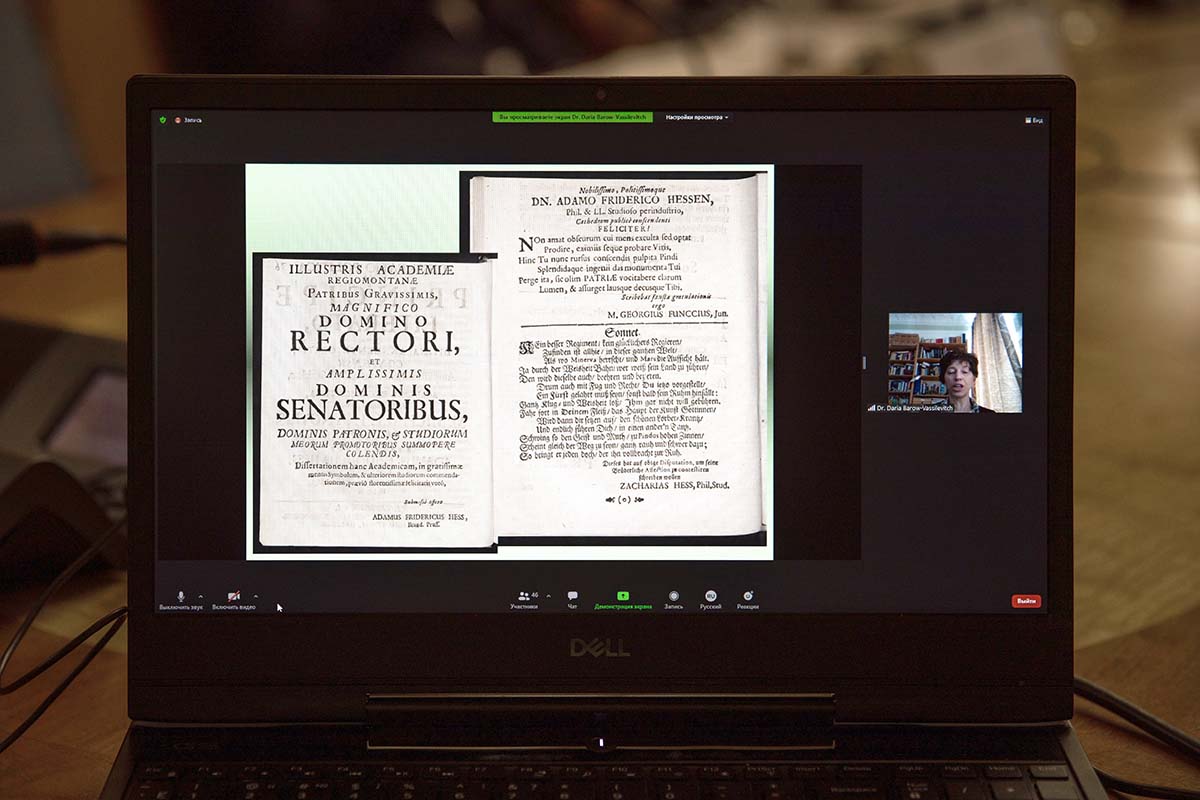 Запись
Вы просматриваете экран Dr. Daria Barow-Vassilevitch
Настройки просмотра
Вид
ILLUSTRIS ACADEMIÆ
REGIOMONTANÆ
PATRIBUS GRAVISSIMIS,
MAGNIFICO
DOMINO
RECTORI,
ET
AMPLISSIMIS
DOMINIS
SENATORIBUS,
DOMINIS PATRONIS, & STUDIORUM
MEORUM PROMOTORIBUS SUMMOPERE
COLENDIS,
Dissertationem hanc Academicam, in gratissimæ
mentis Symbolum, & ulteriorem studiorum commenda-
tionem, prævio florentissimæ felicitatis voto,
Submisse offero
ADAMUS FRIDERICUS HESS,
Nobilissimo, Politissimoque
DN. ADAMO FRIDERICO HESSEN,
Phil. & LL. Studioso perindustrio,
Cathedram publicè conscendenti
FELICITER!
NOn amat obscurum cui mens exculta sed optat
Prodire, eximiis seque probare Viris.
Hinc Tu nunc rursus conscendis pulpita Pindi
Splendidaque ingenii das monumenta Tui
Perge ita, sic olim PATRIÆ vocitabere clarum
Lumen, & assurget lausque decusque Tibi.
Scribebat faustæ gratulationis
ergo
M. GEORGIUS FUNCCIUS, Jun.
Sonnet.
KEin besser Regiment/ kein glücklichers Regieren/
Zufinden ist allhie/ in dieser gantzen Welt/
Als wo Minerva herrscht/ und Mars die Auffsicht hält.
Ja durch der Weißheit Bahn/ wer weiß sein Land zu führen/
Den wird dieselbe auch/ beehren und bezieren.
Drum auch mit Fug und Recht/ Du itzo vorgestellt/
Ein Fürst gelahrt muß seyn/ sonst bald sein Ruhm hinfällt:
Gantz Klug/ und Weißheit loß/ Ihm gar nicht will gebühren.
Fahr fort in Deinem Fleiß/ das Haupt der Kunst Göttinnen/
Wird dann dir setzen auf/ den schönen Lorber-Krantz/
Und endlich führen Dich/ in einen ander'n Tantz.
Schwing so den Geist und Muth/ zu Pindus hohen Zinnen/
Scheint gleich der Weg zu seyn/ gantz rauh und schwer dazu;
So bringt er jeden doch/ der ihn vollbracht zur Ruh.
Dieses hat auf obige Disputation, um seine
Brüderliche Affection zu contestiren
schreiben wollen
ZACHARIAS HESS, Phil. Stud.
(o)
Dr. Daria Barow-Vassilevitch
Выключить звук
Включить видео
46
Участники
Чат
Демонстрация экрана
Запись
RU
Русский
Реакции
Выйти
DELL